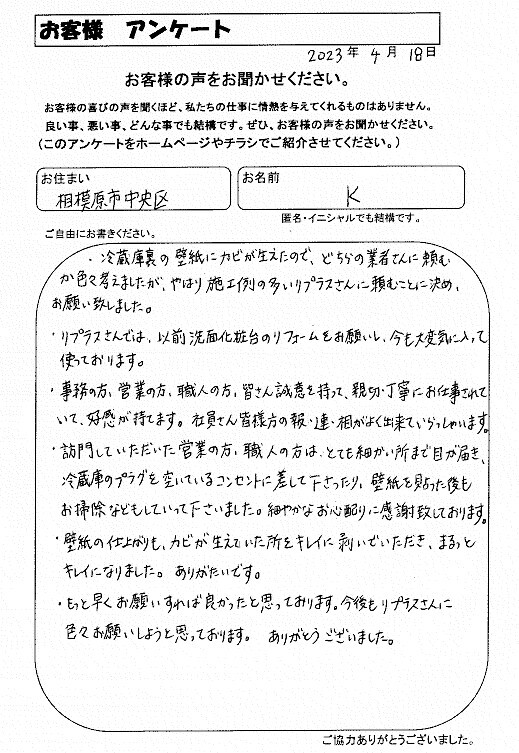 お客様 アンケート
2023年 4月 18日
お客様の声をお聞かせください。
お客様の喜びの声を聞くほど、私たちの仕事に情熱を与えてくれるものはありません。
良い事、悪い事、どんな事でも結構です。ぜひ、お客様の声をお聞かせください。
(このアンケートをホームページやチラシでご紹介させてください。)
お住まい
相模原市中央区
お名前
K
匿名・イニシャルでも結構です。
ご自由にお書きください。
・冷蔵庫裏の壁紙にカビが生えたので、どちらの業者さんに頼む
か色々考えましたが、やはり施工例の多いリプラスさんに頼むことに決め、
お願い致しました。
・リプラスさんでは、以前洗面化粧台のリフォームをお願いし、今も大変気に入って
使っております。
・事務の方、営業の方、職人の方、皆さん誠意を持って、親切・丁寧にお仕事されて
いて、好感が持てます。社員さん皆様方の報・連・相がよく出来ていらっしゃいます。
・訪問していただいた営業の方、職人の方は、とても細かい所まで目が届き、
冷蔵庫のプラグを空いているコンセントに差して下さったり、壁紙を貼った後も
お掃除などもしていって下さいました。細やかなお心配りに感謝致しております。
・壁紙の仕上がりも、カビが生えていた所をキレイに剥いでいただき、まるっと
キレイになりました。ありがたいです。
・もっと早くお願いすれば良かったと思っております。今後もリプラスさんに
色々お願いしようと思っております。 ありがとうございました。
ご協力ありがとうございました。